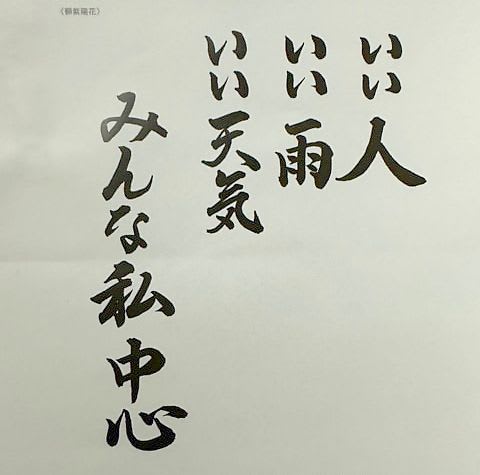 いい人
いい雨
いい天気
みんな私中心
〈額紫陽花〉